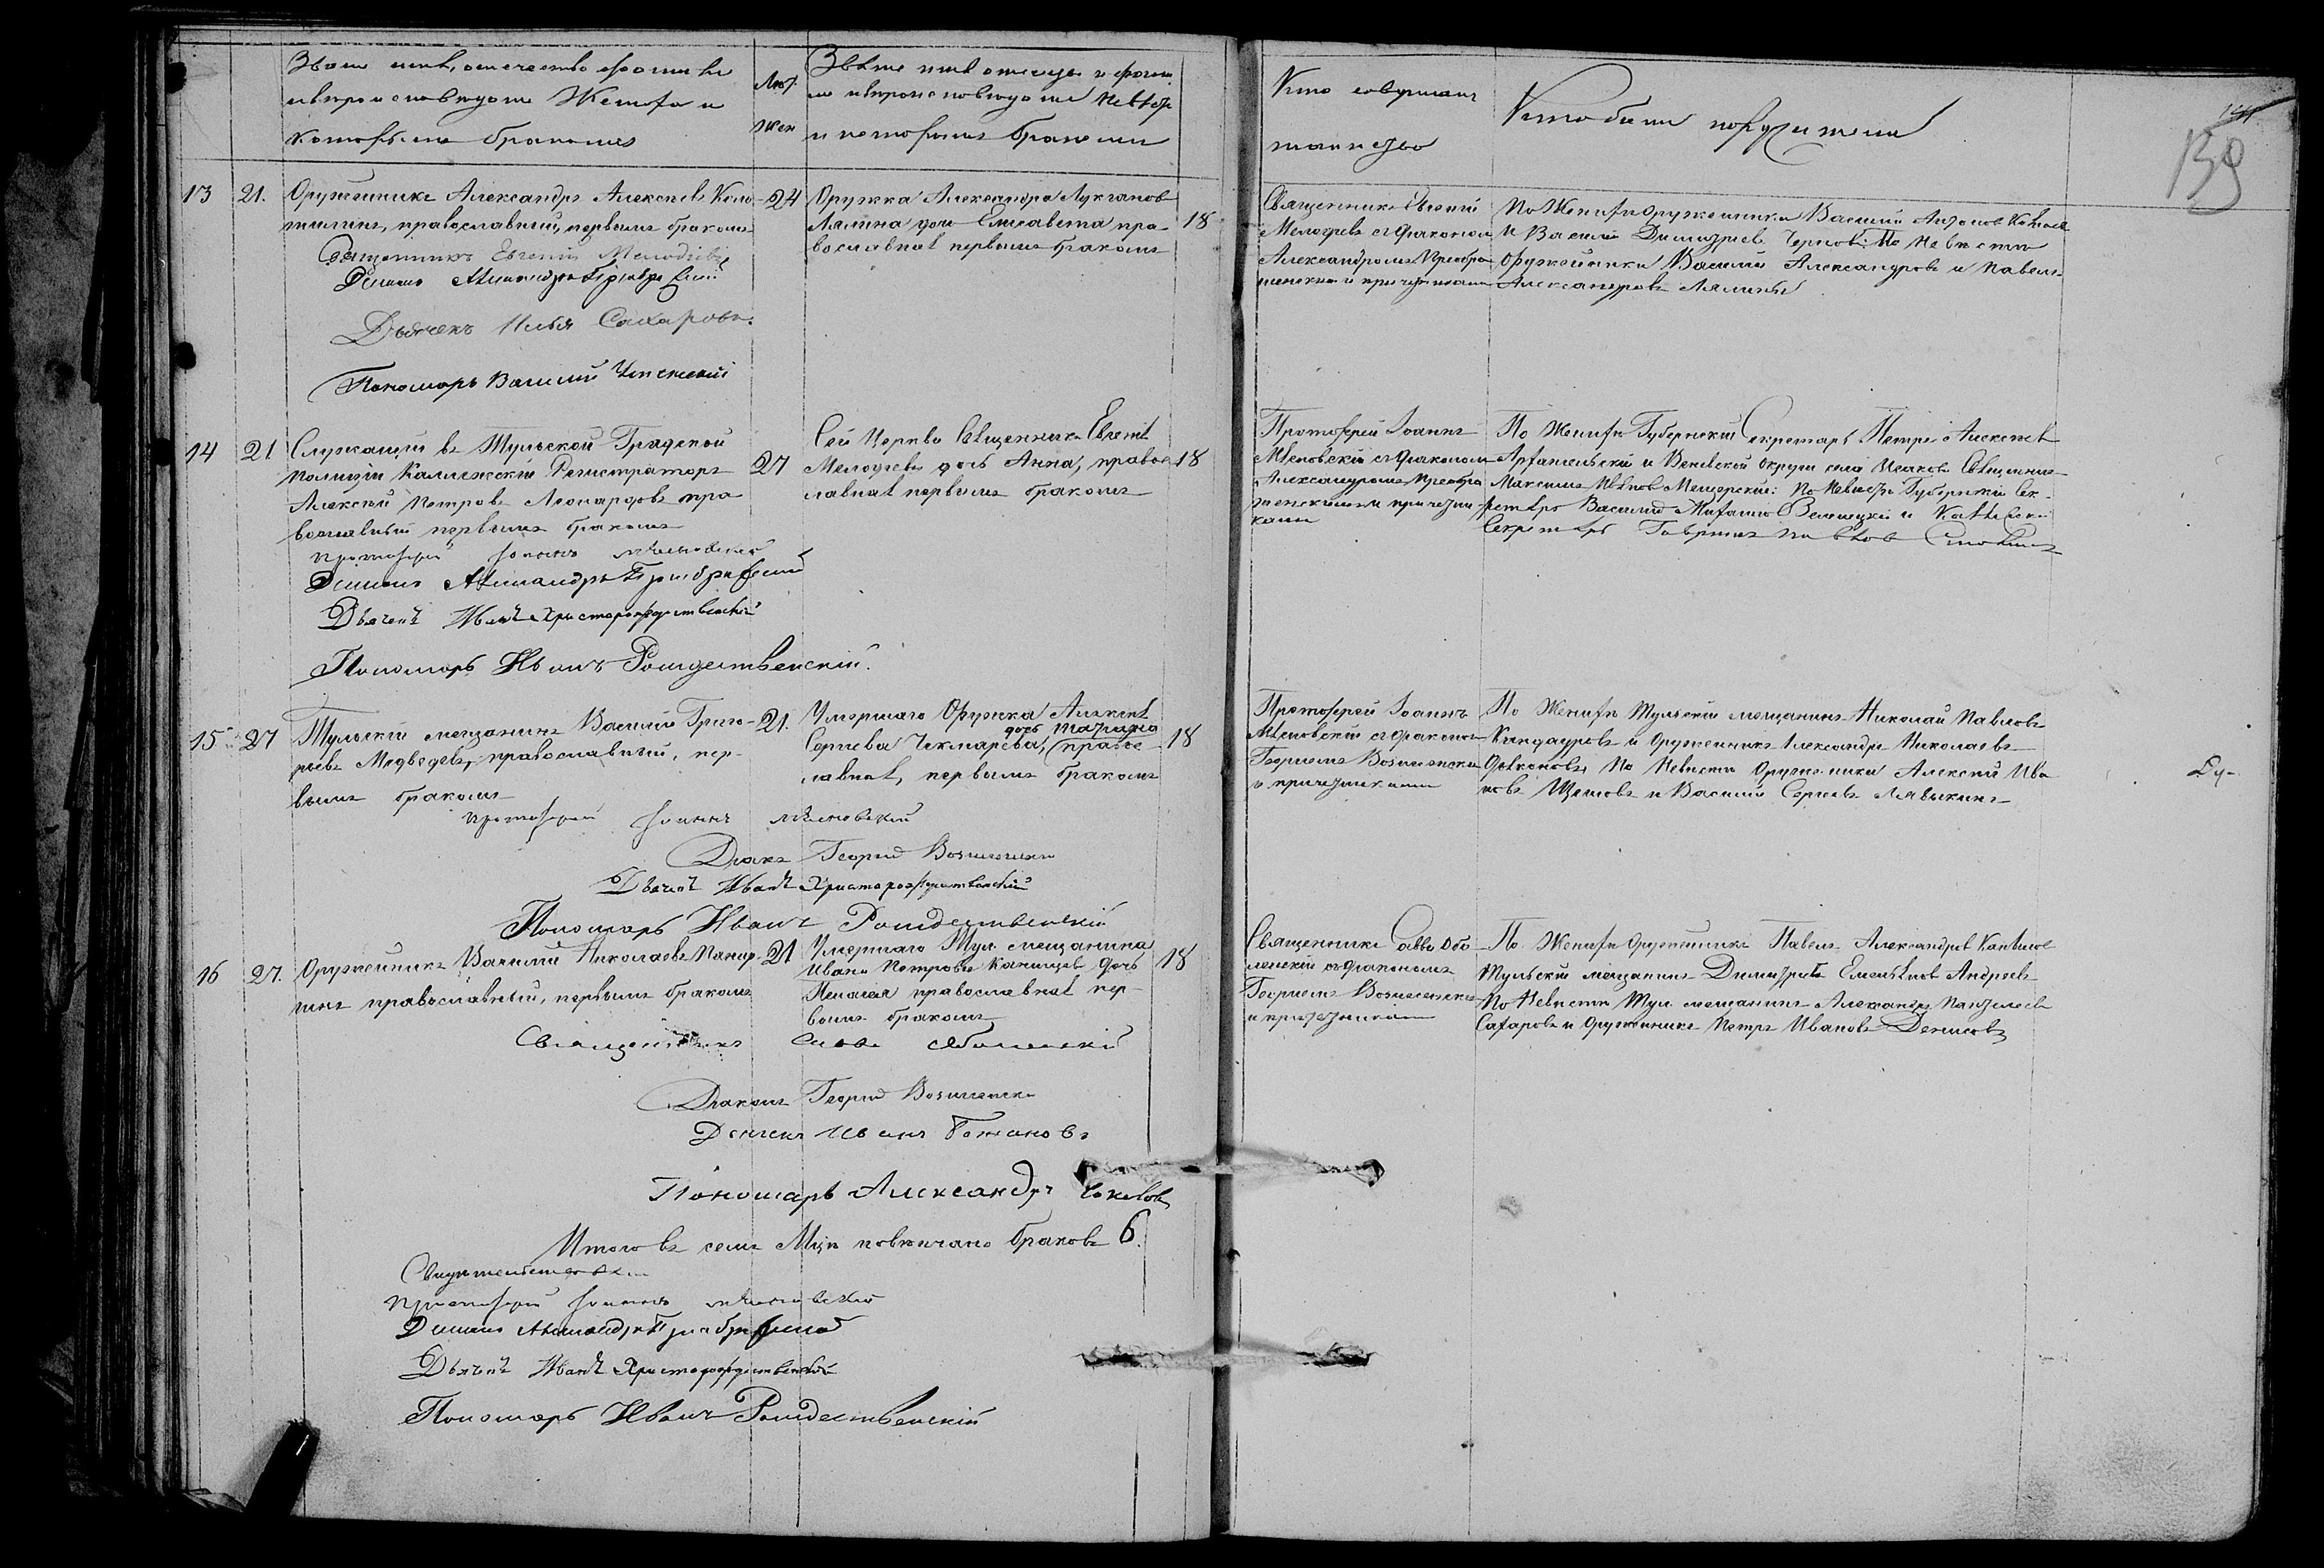 Званіе имя, отечество фамилія
и вѣроисповѣданіе Жениха и
которымъ бракомъ
Лѣт.
жен
Званіе имя отчество и фамил
ія и вѣроисповѣданіе невѣсты
и которымъ бракомъ
Кто совершалъ
таинство
Кто были поручители
139
13 21. Оружейникъ Александръ Алексѣевъ
православный, первымъ бракомъ
24
Оружейника Александра Лукьянова
Лялина дочь Елисавета пра-
вославная первымъ бракомъ
18
Священникъ Евгеній
Мелодіевъ съ діакономъ
Александромъ Преобра
женскимъ и причетниками
По Женихѣ оружейники Василій
и Василій Димитріевъ Черновъ: По невѣстѣ
оружейники Василій Александровъ и Павелъ
Александровъ Лялины
Священникъ Евгеній Мелодіевъ
Діаконъ Александръ Преображенскій
Дьячекъ Илья Сахаровъ.
Пономарь Василій Успенскій
14 21 Служащій въ Тульской Градской
полиціи Коллежскій Регистраторъ
Алексѣй Петровъ Леонардовъ пра
вославный первымъ бракомъ
27
Сей Церкви Священника Евгенія
Мелодіева дочь Анна, правос
лавная первымъ бракомъ
18
Протоіерей Іоаннъ
Мясновскій съ діакономъ
Александромъ Преобра
женскимъ и причетни
ками
По Женихѣ Губернскій Секретарь Петръ Алексѣевъ
Архангельскій и Веневской округи села Исакова Священникъ
Максимъ Ивановъ Мещерскій: По невѣстѣ Губернскій Сек-
ретарь Василій
Секретарь Гавріилъ Павловъ
Протоіерей Іоаннъ Мясновскій
Діаконъ Александръ Преображенскій
Дьячекъ Иванъ Христорождественскій
Пономарь Иванъ Рождественскій.
15 27 Тульскій мещанинъ Василій Григо-
рьевъ Медвѣдевъ, православный, пер-
вымъ бракомъ
21.
Умершаго Оружейника Алексѣя
Сергѣева Чекмарева, дочь правос
лавная, первымъ бракомъ
18
Протоіерей Іоаннъ
Мясновскій съ діакономъ
Георгіемъ Вознесенскимъ
и причетниками
По Женихѣ Тульскій мещанинъ Николай Павловъ
Киндауровъ и Оружейникъ Александръ Николаевъ
Дьяконовъ, По Невѣстѣ Оружейники Алексѣй Ива
новъ Щегловъ и Василій Сергѣевъ
Протоіерей Іоаннъ Мясновскій
Діаконъ Георгій Вознесенскій
Дьячекъ Иванъ Христорождественскій
Пономарь Иванъ Рождественскій
16 27. Оружейникъ Василій Николаевъ
православный, первымъ бракомъ
21
Умершаго Тул. мещанина
Ивана Петрова дочь
Пелагея православная пер-
вымъ бракомъ
18
Священникъ Савва Обо
ленскій съ діакономъ
Георгіемъ Вознесенскимъ
и причетниками
По Женихѣ Оружейникъ Павелъ Александровъ
Тульскій мещанинъ Димитрій Емельяновъ Андреевъ
По Невѣстѣ Тул. мещанинъ Александръ Пантелеевъ
Сахаровъ и Оружейникъ Петръ Ивановъ Денисовъ
Священникъ Савва Оболенскій
Діаконъ Георгій Вознесенскій
Дьячекъ Иванъ
Пономарь Александръ Соколовъ
Итого въ семъ Мцѣ повѣнчано браковъ 6.
Протоіерей Іоаннъ Мясновскій
Діаконъ Александръ Преображенскій
Дьячекъ Иванъ Христорождественскій
Пономарь Иванъ Рождественскій